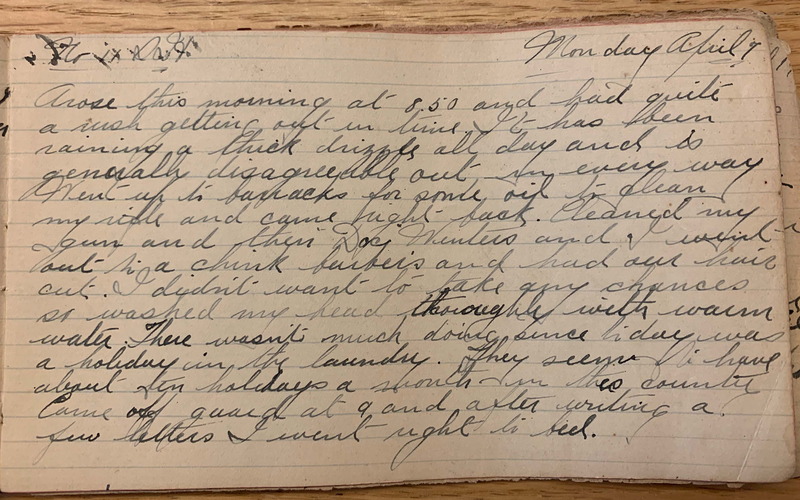 Monday April 9
Arose this morning at 8.50 and had quite
a rush getting out in time. It has been
raining a thick drizzle all day and is
generally disagreeable out in every way.
Went up to barracks for some oil to clean
my rifle and came right back. Cleaned my
gun and then Doc Winters and I went
out to a chink barbers and had our hair
cut. I didn't want to take any chances
so washed my head thoroughly with warm
water. There wasn't much doing since today was
a holiday in the laundry. They seem to have
about ten holidays a month in this country
Came off guard at 9 and after writing a
few letters I went right to bed.